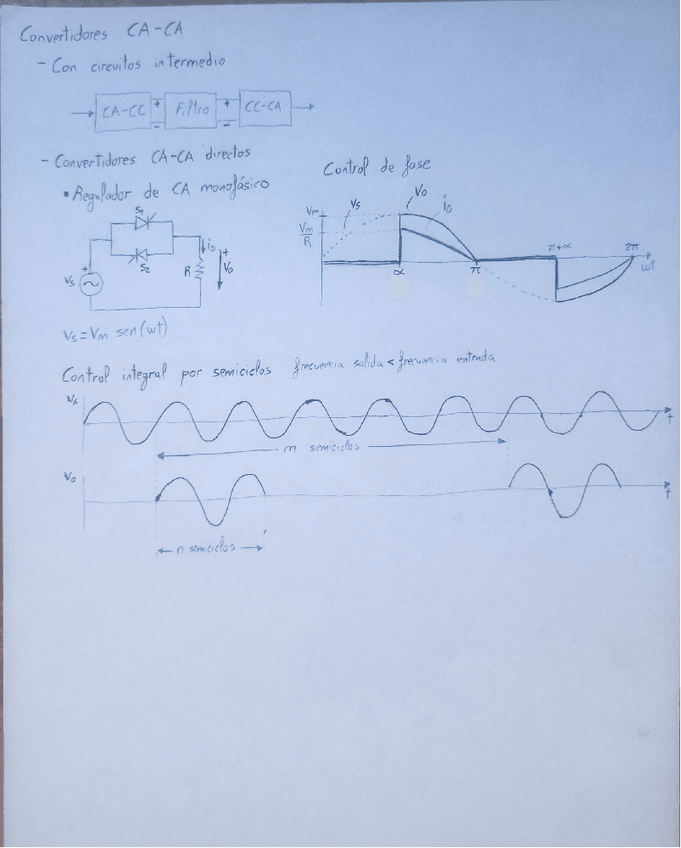 Convertidores CA-CA
- Con circuitos intermedio
CA-CC + - Filtro + - CC-CA
- Convertidores CA-CA directos
• Regulador de CA monofásico
S1
S2
Vs
+
io
R
+
Vo
Vs = Vm sen(wt)
Control de fase
Vm
Vm/R
Vs
Vo
io
α
π
π+α
2π
wt
Control integral por semiciclos frecuencia salida < frecuencia entrada
Vs
t
m semiciclos
Vo
t
n semiciclos